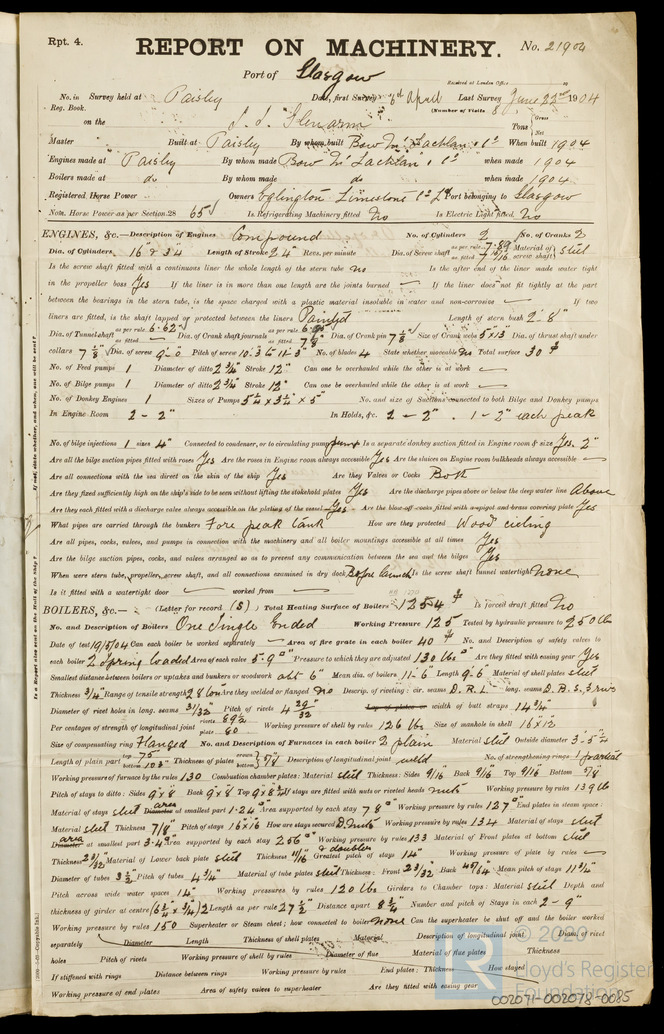 Rpt. 4.
REPORT ON MACHINERY.
No. 21904
Port of Glasgow
Received at London Office
No. in Survey held at Paisley Date, first Survey 6th April Last Survey June 22nd 1904
Reg. Book. (Number of Visits
on the S. S. "Glenarm" Tons Gross Net
Master Built at Paisley By whom built Bow McLachlan & Co When built 1904
Engines made at Paisley By whom made Bow McLachlan & Co when made 1904
Boilers made at do By whom made do when made 1904
Registered Horse Power Owners Eglinton Limestone Co Ld Port belonging to Glasgow
Nom. Horse Power as per Section 28 65 Is Refrigerating Machinery fitted No Is Electric Light fitted No
ENGINES, &c.—Description of Engines Compound No. of Cylinders 2 No. of Cranks 2
Dia. of Cylinders 16" & 34 Length of Stroke 24 Revs. per minute Dia. of Screw shaft as per rule 7.89 as fitted 7 15/16 Material of screw shaft steel
Is the screw shaft fitted with a continuous liner the whole length of the stern tube no Is the after end of the liner made water tight
in the propeller boss Yes If the liner is in more than one length are the joints burned — If the liner does not fit tightly at the part
between the bearings in the stern tube, is the space charged with a plastic material insoluble in water and non-corrosive — If two
liners are fitted, is the shaft lapped or protected between the liners Painted Length of stern bush 2'-8"
Dia. of Tunnel shaft as per rule 6.62" as fitted — Dia. of Crank shaft journals as per rule as fitted 7 1/8 Dia. of Crank pin 7 1/8 Size of Crank webs 5x13 Dia. of thrust shaft under
collars 7 1/8 Dia. of screw 9'-0 Pitch of screw 10.3 to 11'-3" No. of blades 4 State whether moveable No Total surface 30
No. of Feed pumps 1 Diameter of ditto 2 3/4 Stroke 12" Can one be overhauled while the other is at work —
No. of Bilge pumps 1 Diameter of ditto 2 3/4 Stroke 12" Can one be overhauled while the other is at work —
No. of Donkey Engines 1 Sizes of Pumps 5 1/4 x 3 1/4 x 5" No. and size of Suctions connected to both Bilge and Donkey pumps
In Engine Room 2 - 2" In Holds, &c. 2 - 2". 1 - 2" each peak
No. of bilge injections 1 sizes 4" Connected to condenser, or to circulating pump pump Is a separate donkey suction fitted in Engine room & size Yes. 2"
Are all the bilge suction pipes fitted with roses Yes Are the roses in Engine room always accessible Yes Are the sluices on Engine room bulkheads always accessible —
Are all connections with the sea direct on the skin of the ship Yes Are they Valves or Cocks Both
Are they fixed sufficiently high on the ship's side to be seen without lifting the stokehold plates Yes Are the discharge pipes above or below the deep water line Above
Are they each fitted with a discharge valve always accessible on the plating of the vessel Yes Are the blow-off cocks fitted with a spigot and brass covering plate Yes
What pipes are carried through the bunkers Fore peak tank How are they protected Wood ceiling
Are all pipes, cocks, valves, and pumps in connection with the machinery and all boiler mountings accessible at all times Yes
Are the bilge suction pipes, cocks, and valves arranged so as to prevent any communication between the sea and the bilges Yes
When were stern tube, propeller, screw shaft, and all connections examined in dry dock Before launch Is the screw shaft tunnel watertight none
Is it fitted with a watertight door — worked from —
BOILERS, &c.— (Letter for record (S)) Total Heating Surface of Boilers 1254 Is forced draft fitted No
No. and Description of Boilers One Single Ended Working Pressure 125 Tested by hydraulic pressure to 250 lb
Date of test 19/5/04 Can each boiler be worked separately — Area of fire grate in each boiler 40 No. and Description of safety valves to
each boiler 2 Spring loaded Area of each valve 5.9" Pressure to which they are adjusted 130 lbs Are they fitted with easing gear Yes
Smallest distance between boilers or uptakes and bunkers or woodwork abt 6" Mean dia. of boilers 11-6" Length 9-6" Material of shell plates steel
Thickness 3/4" Range of tensile strength 28 tons Are they welded or flanged no Descrip. of riveting: cir. seams D.R.L long. seams D.B.S. 3 rivs
Diameter of rivet holes in long. seams 31/32" Pitch of rivets 4 29/32 Lap of plates or width of butt straps 14 3/4"
Per centages of strength of longitudinal joint rivets 89.2 plate 80 Working pressure of shell by rules 126 lbs Size of manhole in shell 16"x12"
Size of compensating ring Flanged No. and Description of Furnaces in each boiler 2 plain Material steel Outside diameter 3'-5 1/4
Length of plain part top 75" bottom 103" Thickness of plates crown bottom 5/8 Description of longitudinal joint weld No. of strengthening rings 1 partial
Working pressure of furnace by the rules 130 Combustion chamber plates: Material steel Thickness: Sides 9/16 Back 9/16 Top 9/16 Bottom 5/8
Pitch of stays to ditto: Sides 9x8 Back 9x8 Top 9x8 3/4 If stays are fitted with nuts or riveted heads nuts Working pressure by rules 139 lb
Material of stays steel Diameter area at smallest part 1.24" Area supported by each stay 78" Working pressure by rules 127 End plates in steam space:
Material steel Thickness 7/8" Pitch of stays 16"x16 How are stays secured D. nuts Working pressure by rules 134 Material of stays steel
Diameter area at smallest part 3.4" Area supported by each stay 256" Working pressure by rules 133 Material of Front plates at bottom steel
& doublers
Thickness 23/32 Material of Lower back plate steel Thickness 11/16 Greatest pitch of stays 14" Working pressure of plate by rules —
Diameter of tubes 3 1/2 Pitch of tubes 4 3/4 Material of tube plates steel Thickness: Front 23/32 Back 45/64 Mean pitch of stays 11 3/4"
Pitch across wide water spaces 14" Working pressures by rules 120 lbs Girders to Chamber tops: Material steel Depth and
thickness of girder at centre (6 3/4 x 3/4) 2 Length as per rule 27 1/2 Distance apart 8 3/4" Number and pitch of Stays in each 2 - 9"
Working pressure by rules 150 Superheater or Steam chest; how connected to boiler none Can the superheater be shut off and the boiler worked
separately Diameter Length Thickness of shell plates Material Description of longitudinal joint Diam. of rivet
holes Pitch of rivets Working pressure of shell by rules Diameter of flue Material of flue plates Thickness
If stiffened with rings Distance between rings Working pressure by rules End plates: Thickness How stayed
Working pressure of end plates Area of safety valves to superheater Are they fitted with easing gear
If not, state whether, and when, one will be sent?
Is a Report also sent on the Hull of the Ship?
© 2020
Lloyd's Register
Foundation
002071-002078-0085